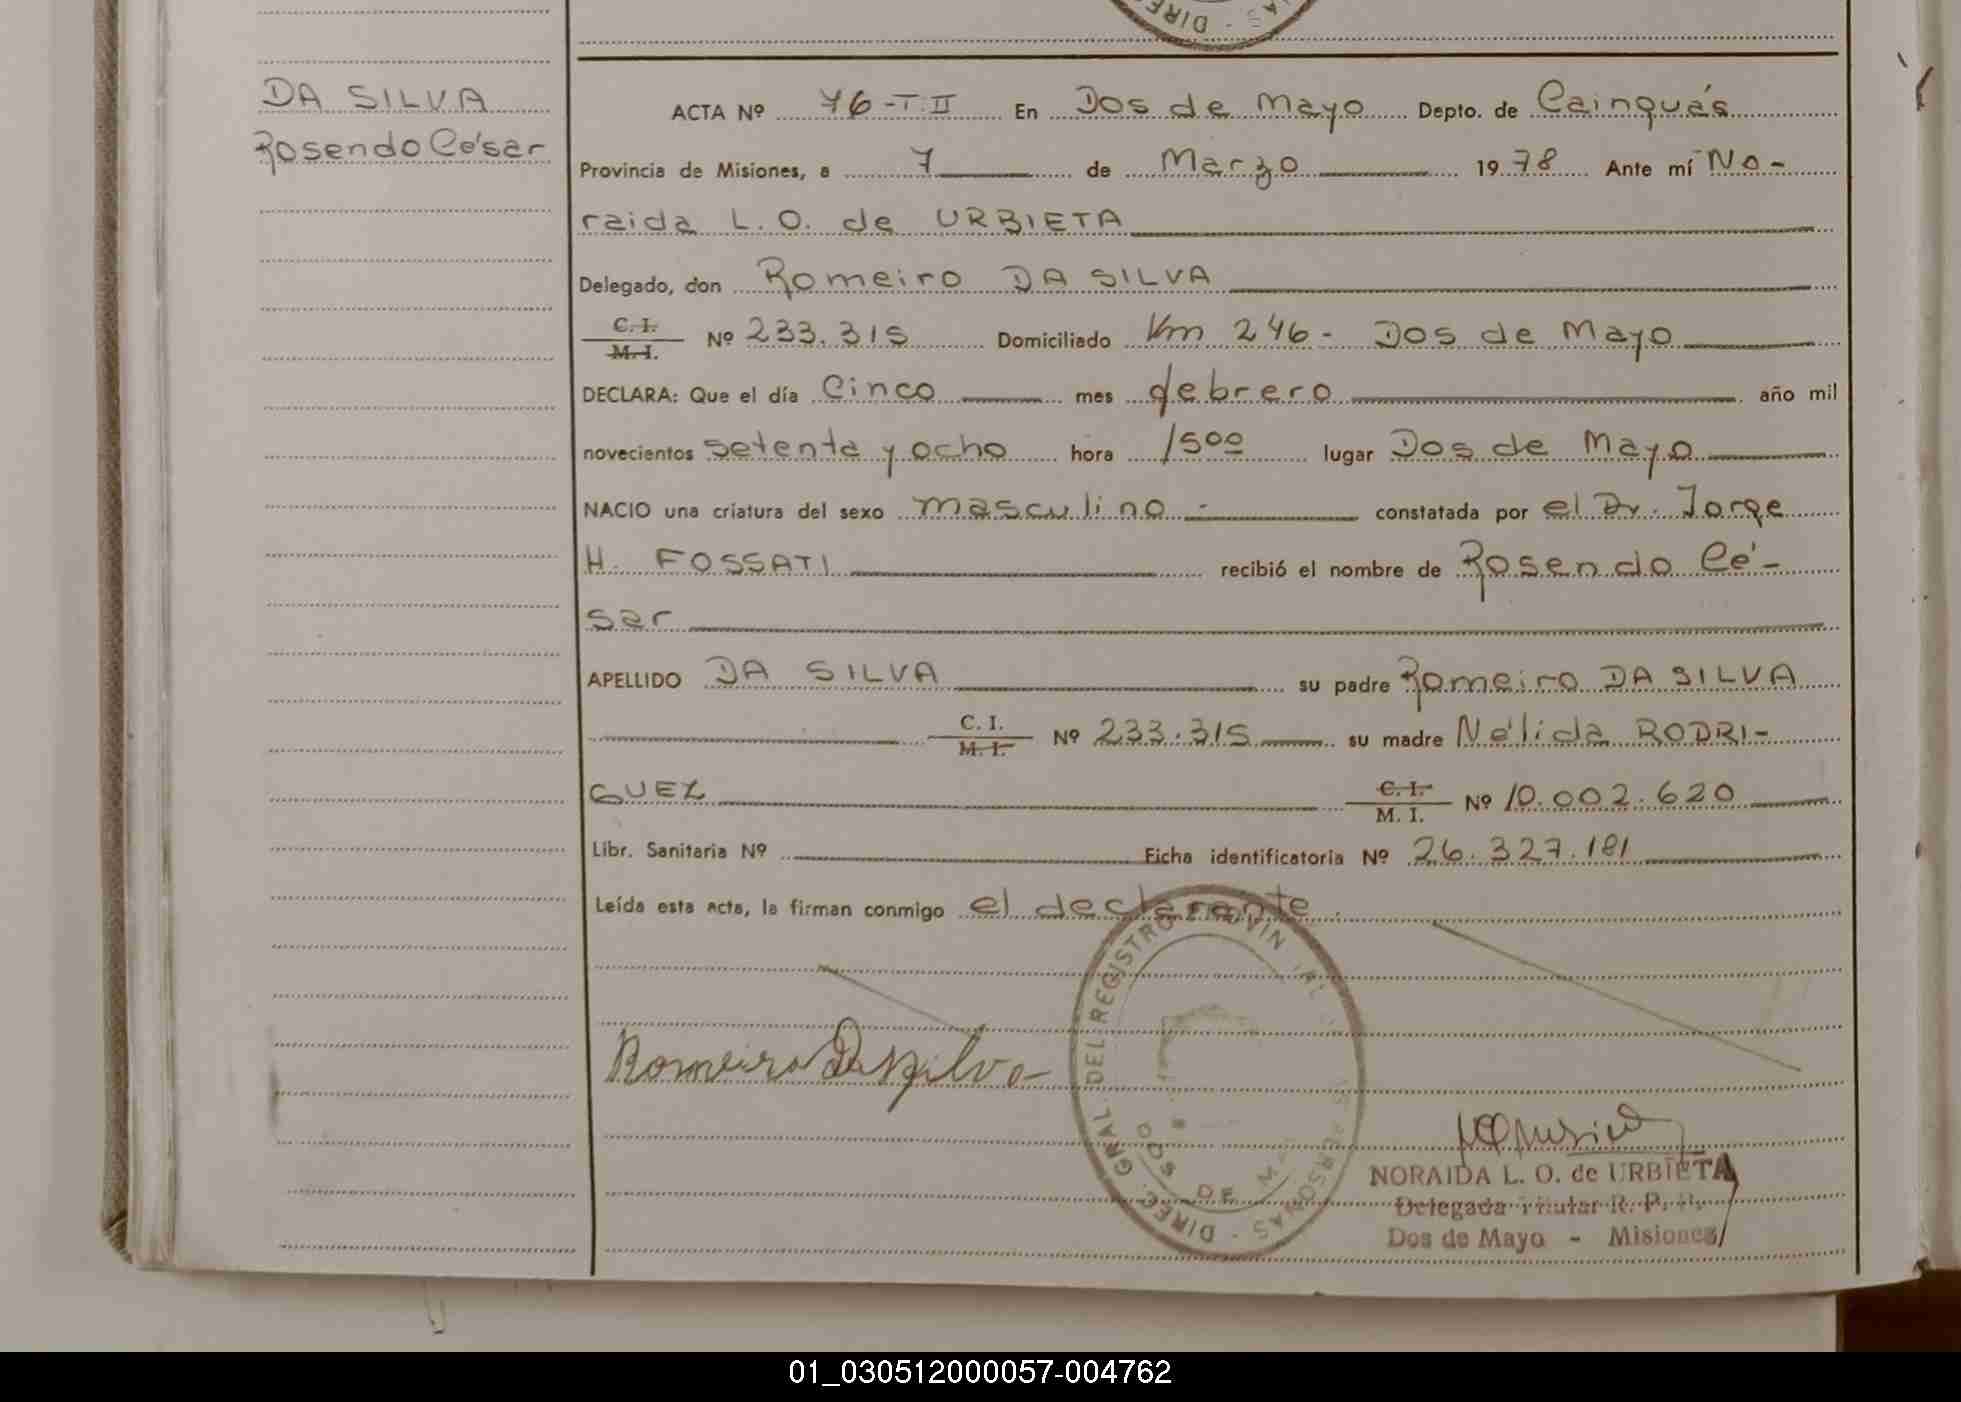 DA SILVA
Rosendo César
ACTA Nº 76-T.II En Dos de Mayo Depto. de Cainguás
Provincia de Misiones, a 7 de Marzo 1978 Ante mí No-
raida L. O. de URBIETA
Delegado, don Romeiro DA SILVA
C. I.
M. I. Nº 233.315 Domiciliado Km 246 - Dos de Mayo
DECLARA: Que el día Cinco mes febrero año mil
novecientos setenta y ocho hora 15 00 lugar Dos de Mayo
NACIO una criatura del sexo masculino - constatada por el Dr. Jorge
H. FOSSATI recibió el nombre de Rosendo Cé-
sar
APELLIDO DA SILVA su padre Romeiro DA SILVA
C. I.
M. I. Nº 233.315 su madre Nélida RODRI-
GUEZ C. I.
M. I. Nº 10.002.620
Libr. Sanitaria Nº Ficha identificatoria Nº 26.327.181
Leída esta acta, la firman conmigo el declarante.
DIREC. GRAL. DEL REGISTRO PROVINCIAL DE LAS PERSONAS
DOS DE M
Romeiro Da Silva
NORAIDA L. O. de URBIETA
Delegada Titular R. P. P.
Dos de Mayo - Misiones
01_030512000057-004762